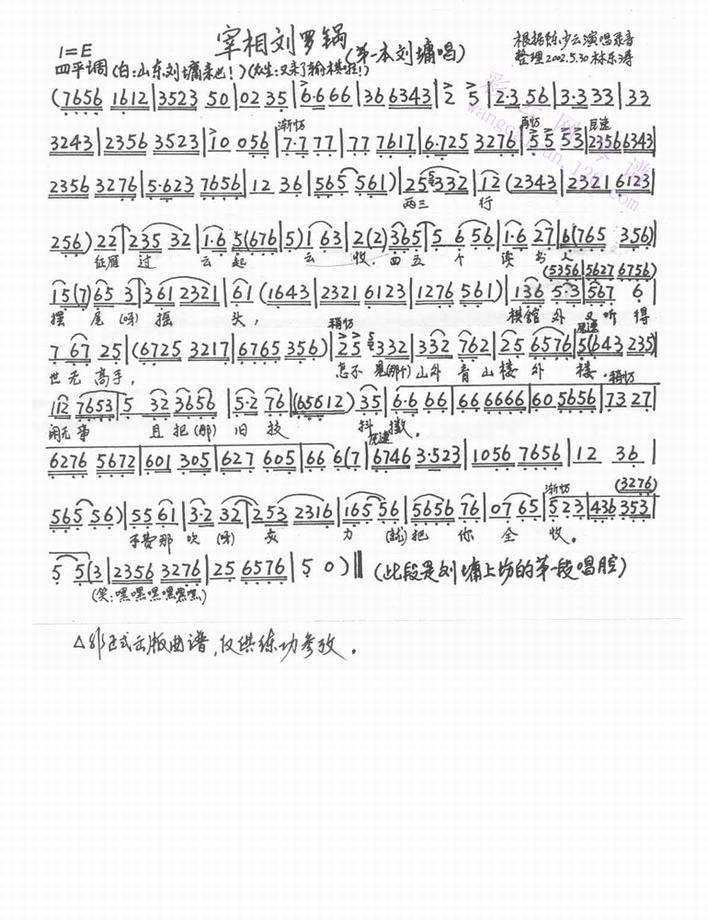 1=E 宰相刘罗锅 (第一本刘墉唱) 根据陈少云演唱录音
四平调 (白:山东刘墉来也!)(众生:又来了输棋啦!) 整理2002.5.30 林东涛
(7656 1612|3523 50|02 35|6·6 66|36 6343|2 5|2·3 56|3·3 33|33
渐快 再快 尺速
3243|2356 3523|10 056|7·7 77|77 7617|6·725 3276|55 53|2356 6343
2356 3276|5·623 7656|12 36|565 561)|25 332|12 (2343|2321 6123
两三 行
256) 22|235 32|1·6 5(676|5) 1 63|2(2) 365|5 6 56|1·6 27|6(765 356)
征雁 过 云起 云 收, 四五 个 读 书 人
(5356|5627 6756)
15(7)65 3|361 2321|61 (1643|2321 6123|1276 561)|136 5·3|567 6|
摆 尾(呀)摇 头, 棋馆 外 又 听 得
稍快 尺速
7 67 25|(6725 3217|6765 356)|25 332|332 762|25 6576|5(643 235)
世 无 高手, 怎不 见(那个)山外 青山 楼 外 楼。
稍快
112 7653|5 32 3656|5·2 76|(65612) 35|6·6 66|66 6666|60 5656|73 27|
闲无 事 且 把(那) 旧 技 抖 擞。
尺速
6276 5672|601 305|627 605|66 6(7|6746 3·523|1056 7656|12 36|
渐快 (3276)
565 56)|55 61|3·2 32|253 2316|165 56|5656 76|07 65|523|436 353|
不费 那 吹(呀) 灰 力 (就)把 你 全 收。
5 5(3|2356 3276|25 6576|5 0)‖ (此段是刘墉上场的第一段唱腔)
(笑:嘿嘿嘿嘿嘿嘿)
△非正式出版曲谱,仅供练功参考。